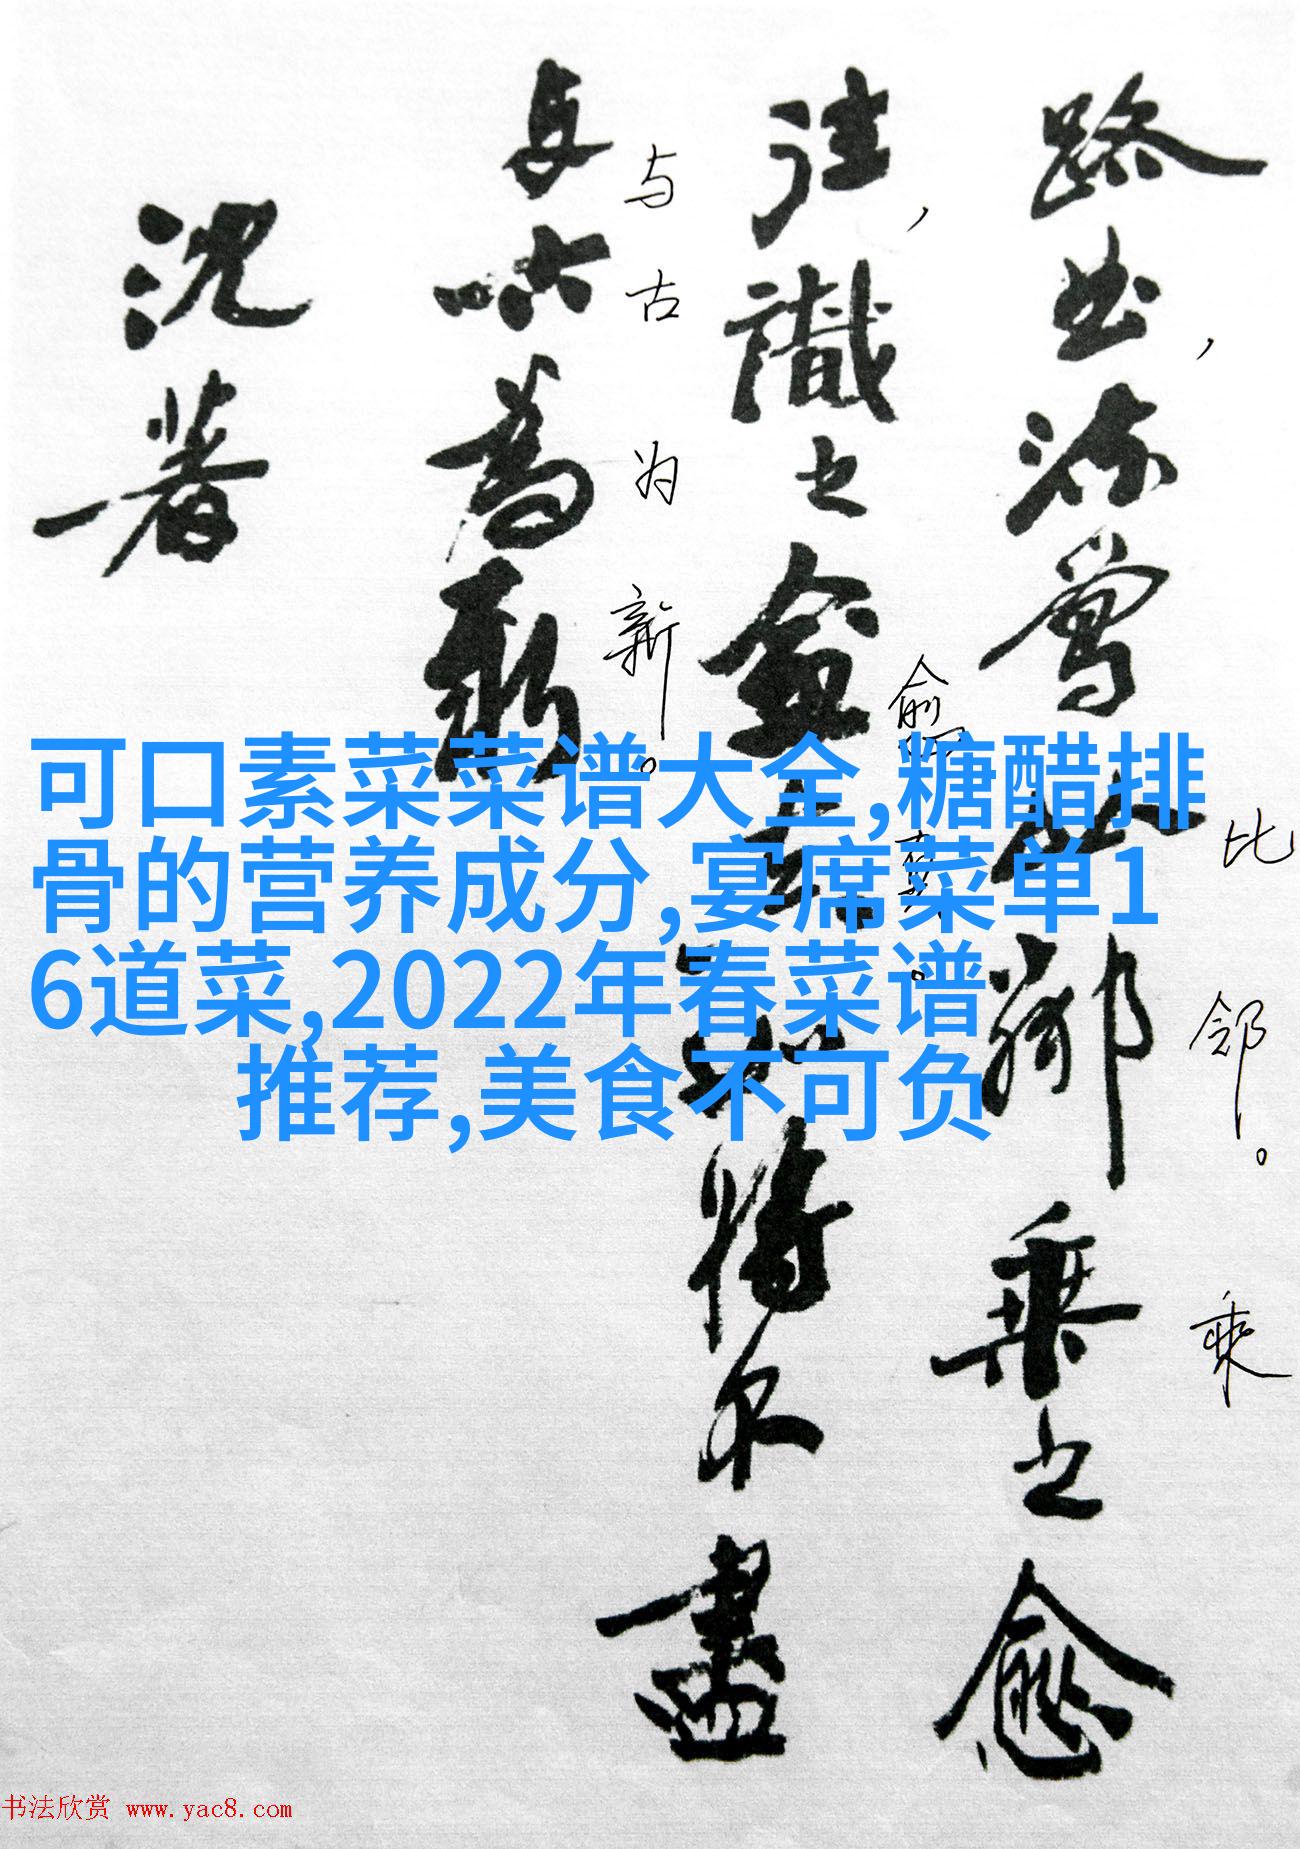 路曲流鶯比鄰乘之愈
，比邻。乘
往識之愈真如將不盡
，
與古為新
与古为新。
沈著
可口素菜菜谱大全,糖醋排
骨的营养成分,宴席菜单1
6道菜,2022年春菜谱
推荐,美食不可负
书法欣赏 www.yac8.com